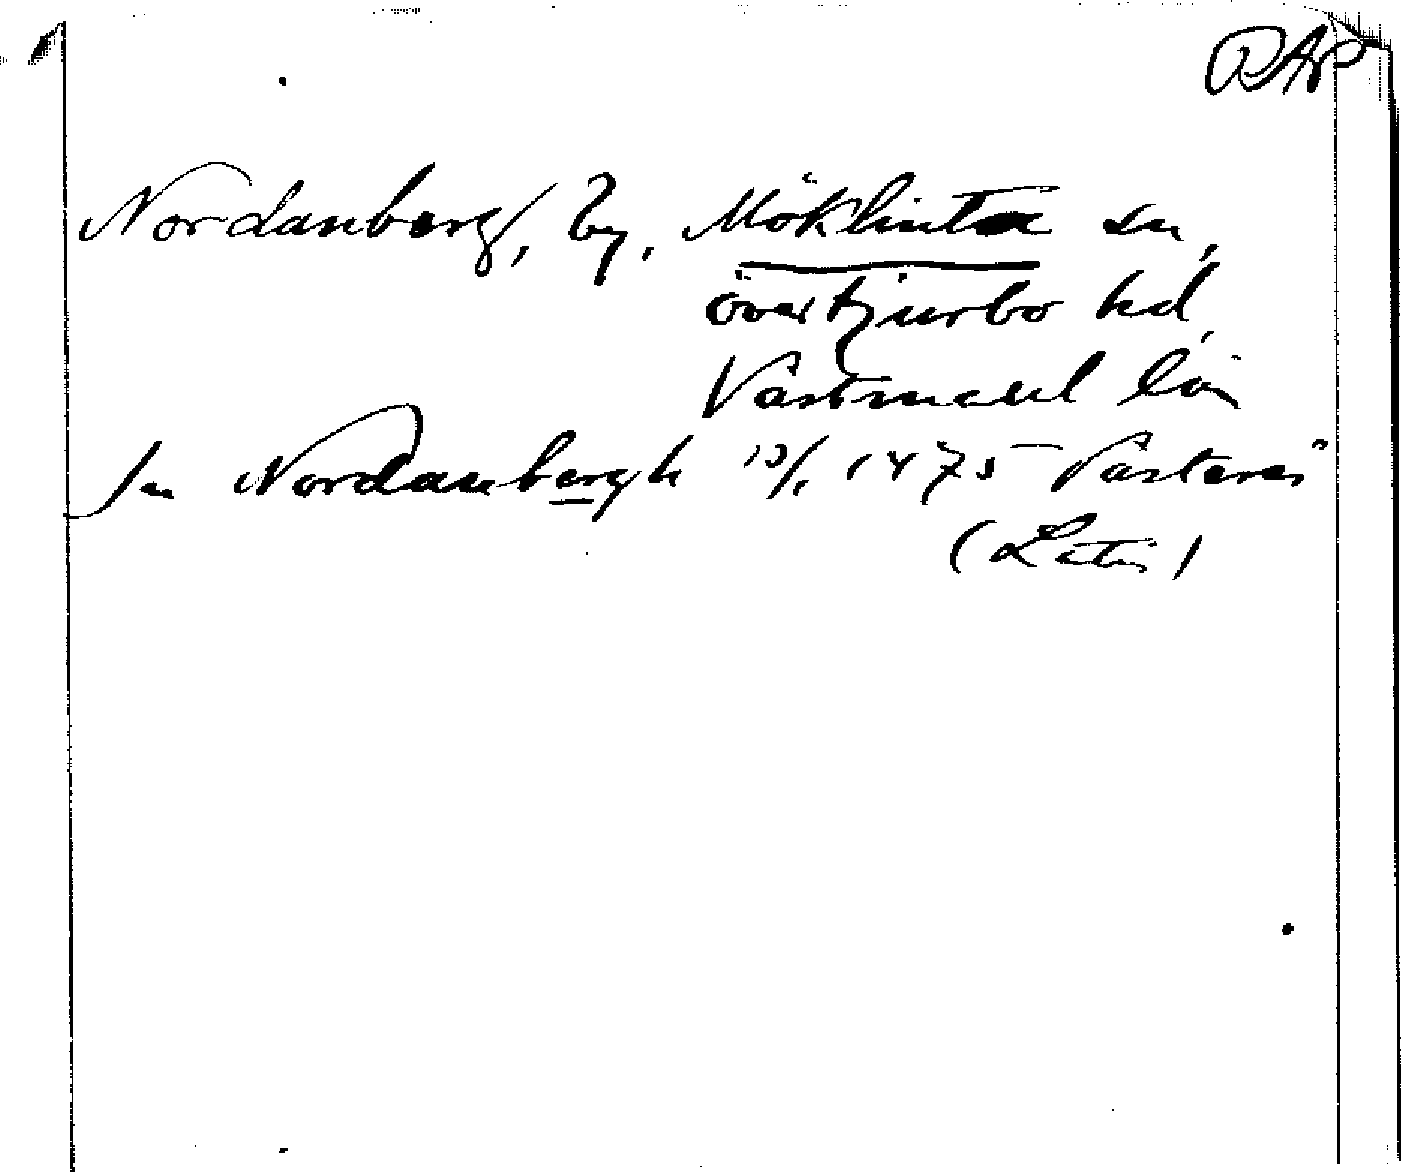 RAP
Nordanberg, by, Möklinta sn,
övertjurbo hd,
Västmanl län
In Nordanbergh 13/1 1475 Västerås
(Latin)